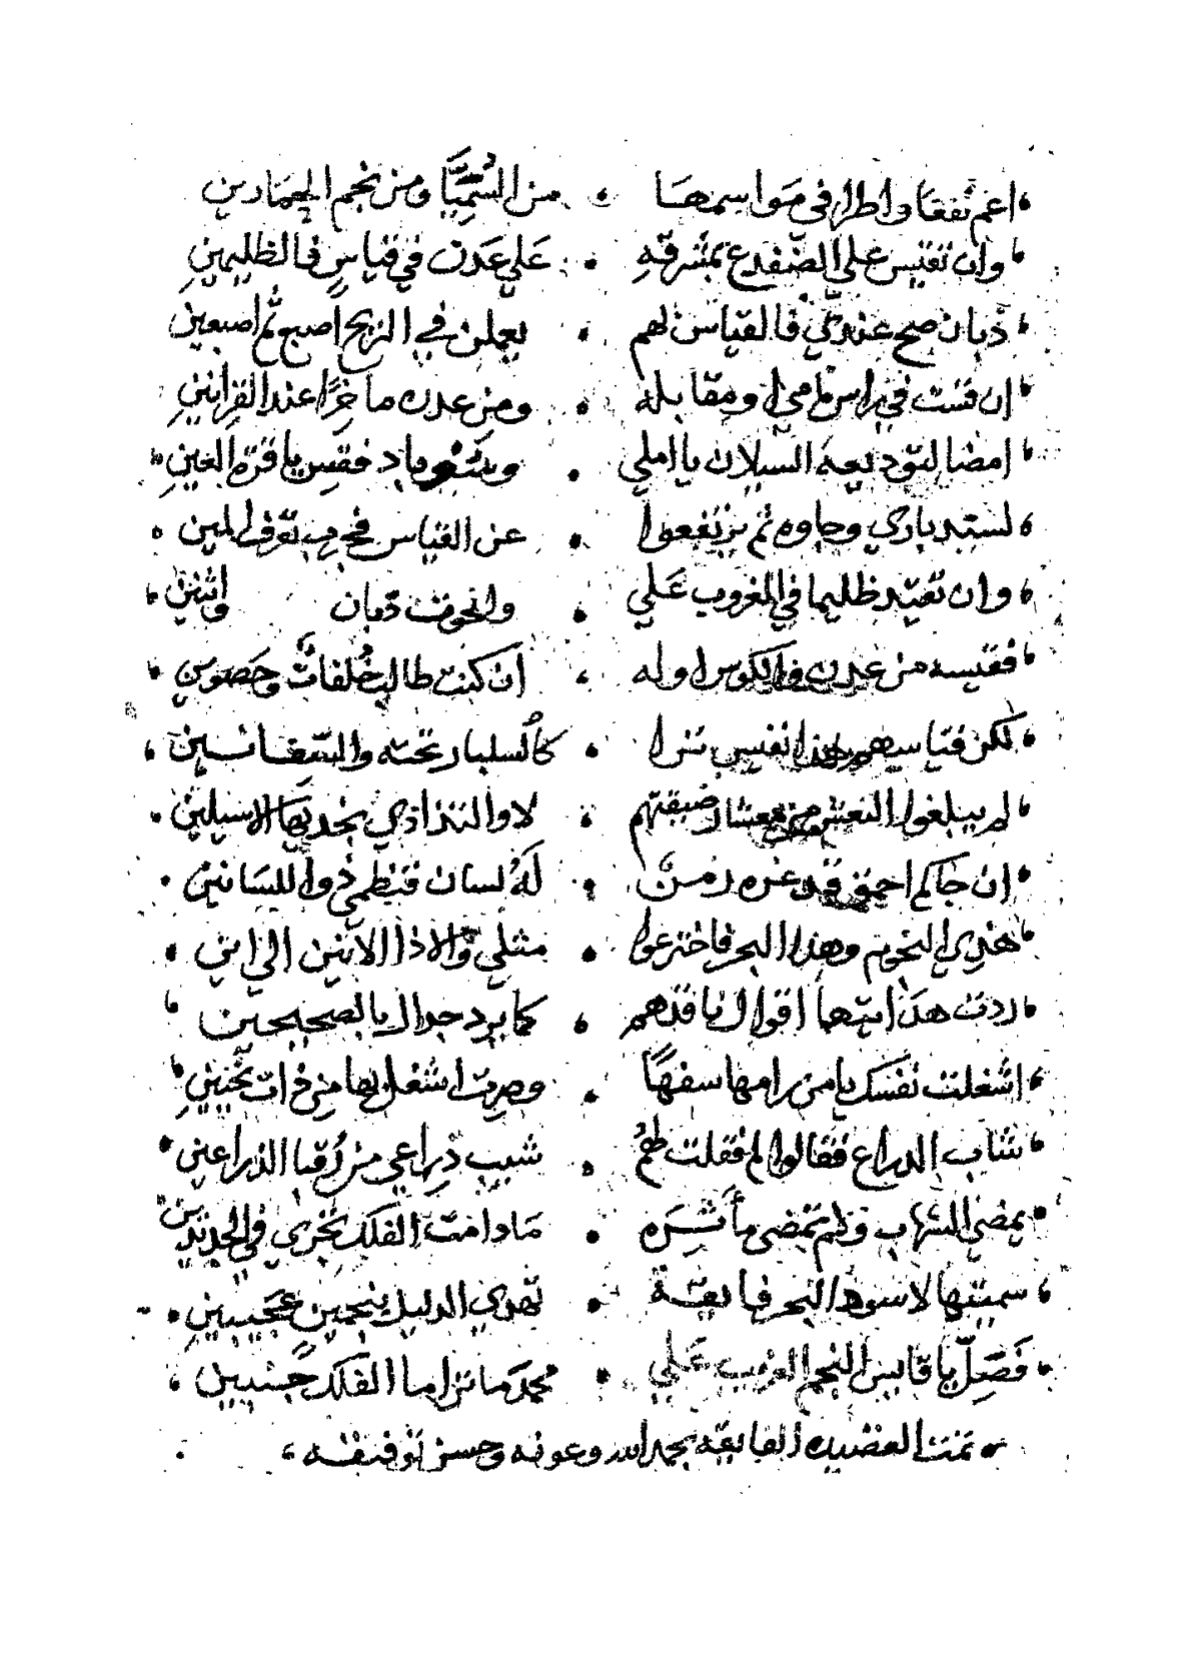 اعم نفعا واطرا في مواسمها ، من السميا ومن نجم الحمادين
وان تقتيس على الضفدع بمشرقه . على عدن في قياس فالظليمين
ذبان صح عندي فالقياس لهم ، يعملن في الزيح اصبع ثم اصبعين
ان قست في راس مامي ومقابله . ومن عدن ماخرا عند القرانين
امضا لتوديعه السيلان يا املي . باد فقس يا قرة العين
لستد باري وجاوه ثم يرتفعوا . عن القياس
وان تقيد ظليما في الغروب علي . وانخوت دبان واثنين
فقتيسه من عدن اوله ، ان كنت طالب خلفات وحصوين
لكن قياسهم هذا نفيس تنرا . كالسلبار تحته والسقانسين ،
لم يبلغوا النعش من معشار ضيقتهم ، لا والننزاذي
ان جاكم احمق قد غره زمن . له لسان فنظمي ذوا للسانين .
هذي النجوم وهذا البحر فاخترعوا . مثلي والا ذا الاثنين الي اين .
ردت هدايتها اقوال ناقدهم ، كما يرد جدال بالصحيحين
اشغلت نفسك يا من رامها سفها . وصرت اشغل بها من ذات نحيين
شاب الدراع فقالوا لم فقلت لهم . شبيب ذراعي من رقبا الذراعين
يمضي الشهاب ولم تمضى مأثره . ما دامت الفلك تجري في الجديدين
سميتها لاسود البحر فايقة . تهدي الدليل بنجمين عجيبين .
فصل يا قايس النجم الغريب علي . محمد ما تراما الفلك جنبين ،
تمت القصيده الفايقه بحمد الله وعونه وحسن توفيقه ،